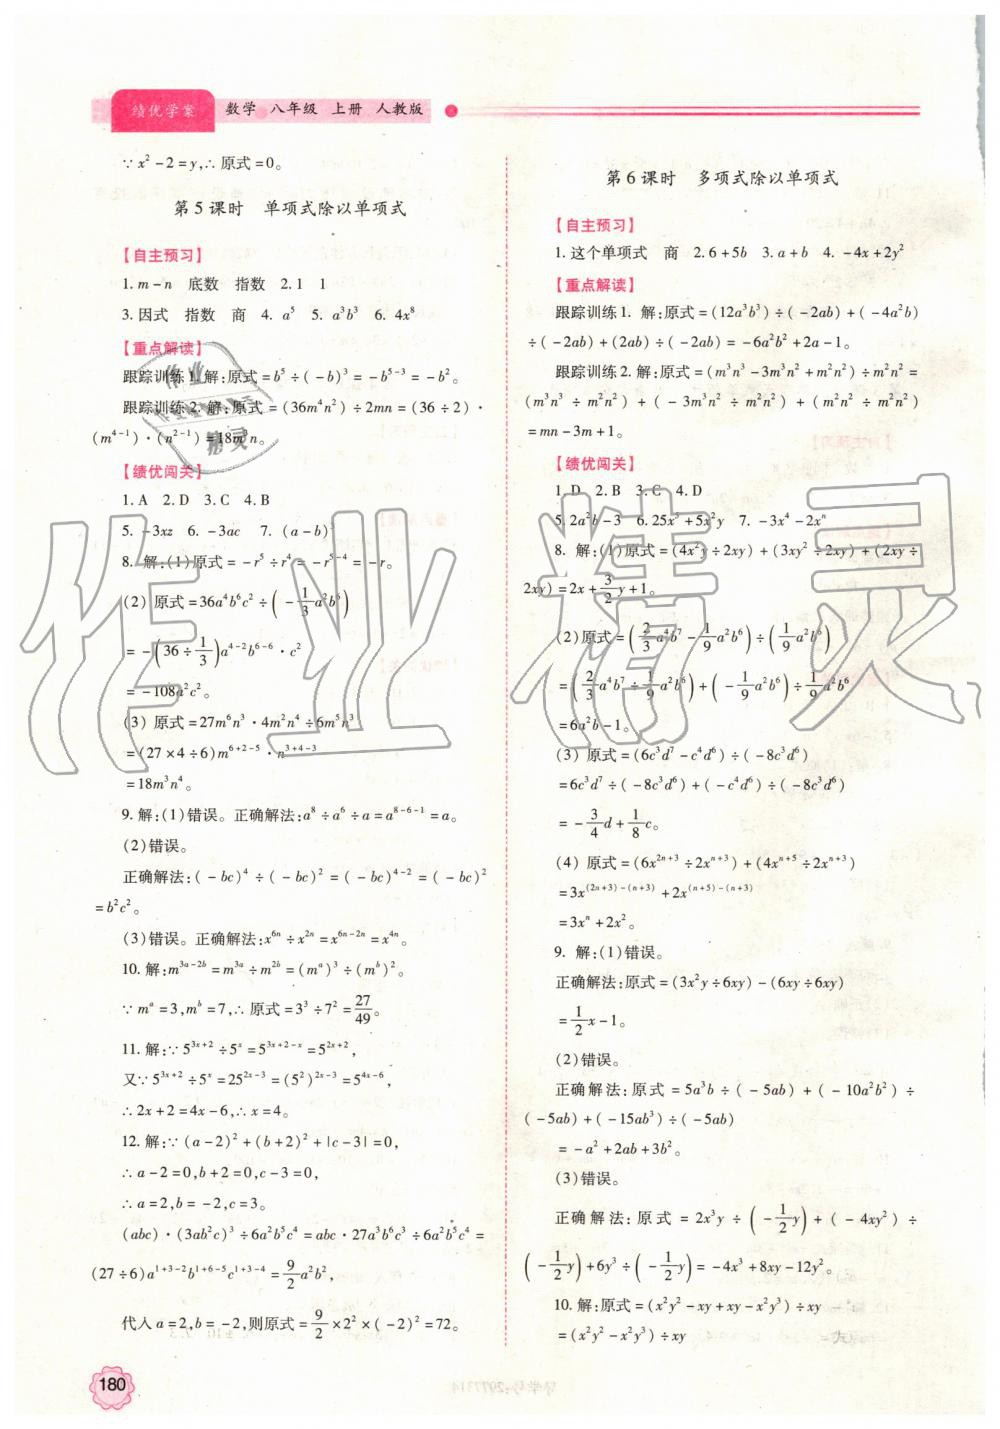 绩优学案 数学 八年级 上册 人教版
∵x²-2=y,∴原式=0。
第5课时 单项式除以单项式
【自主预习】
1.m-n 底数 指数 2.1 1
3.因式 指数 商 4.a⁵ 5.a³b³ 6.4x⁸
【重点解读】
跟踪训练1.解:原式=b⁵÷(-b)³=-b⁵⁻³=-b²。
跟踪训练2.解:原式=(36m⁴n²)÷2mn=(36÷2)·
(m⁴⁻¹)·(n²⁻¹)=18m³n。
【绩优闯关】
1.A 2.D 3.C 4.B
5.-3xz 6.-3ac 7.(a-b)
8.解:(1)原式=-r⁵÷r⁴=-r⁵⁻⁴=-r。
(2)原式=36a⁴b⁶c²÷(-1/3a²b⁶)
=-(36÷1/3)a⁴⁻²b⁶⁻⁶·c²
=-108a²c²。
(3)原式=27m⁶n³·4m²n⁴÷6m⁵n³
=(27×4÷6)m⁶⁺²⁻⁵·n³⁺⁴⁻³
=18m³n⁴。
9.解:(1)错误。正确解法:a⁸÷a⁶÷a=a⁸⁻⁶⁻¹=a。
(2)错误。
正确解法:(-bc)⁴÷(-bc)²=(-bc)⁴⁻²=(-bc)²
=b²c²。
(3)错误。正确解法:x⁶ⁿ÷x²ⁿ=x⁶ⁿ⁻²ⁿ=x⁴ⁿ。
10.解:m^(3a-2b)=m^(3a)÷m^(2b)=(m^a)³÷(m^b)²。
∵m^a=3,m^b=7,∴原式=3³÷7²=27/49。
11.解:∵5^(3x+2)÷5^x=5^(3x+2-x)=5^(2x+2),
又∵5^(3x+2)÷5^x=25^(2x-3)=(5²)^(2x-3)=5^(4x-6),
∴2x+2=4x-6,∴x=4。
12.解:∵(a-2)²+(b+2)²+|c-3|=0,
∴a-2=0,b+2=0,c-3=0,
∴a=2,b=-2,c=3。
(abc)·(3ab²c)³÷6a²b⁵c⁴=abc·27a³b⁶c³÷6a²b⁵c⁴=
(27÷6)a¹⁺³⁻²b¹⁺⁶⁻⁵c¹⁺³⁻⁴=9/2a²b²,
代入a=2,b=-2,则原式=9/2×2²×(-2)²=72。
180
第6课时 多项式除以单项式
【自主预习】
1.这个单项式 商 2.6+5b 3.a+b 4.-4x+2y²
【重点解读】
跟踪训练1.解:原式=(12a³b³)÷(-2ab)+(-4a²b)
÷(-2ab)+(2ab)÷(-2ab)=-6a²b²+2a-1。
跟踪训练2.解:原式=(m³n³-3m³n²+m²n²)÷m²n²=
(m³n³÷m²n²)+(-3m³n²÷m²n²)+(m²n²÷m²n²)
=mn-3m+1。
【绩优闯关】
1.D 2.B 3.C 4.D
5.2a²b-3 6.25x⁵+5x²y 7.-3x⁴-2xⁿ
8.解:(1)原式=(4x²y÷2xy)+(3xy²÷2xy)+(2xy÷
2xy)=2x+3/2y+1。
(2)原式=(2/3a⁴b⁷-1/9a²b⁶)÷(1/9a²b⁶)
=(2/3a⁴b⁷÷1/9a²b⁶)+(-1/9a²b⁶)÷1/9a²b⁶
=6a²b-1。
(3)原式=(6c³d⁷-c⁴d⁶)÷(-8c³d⁶)
=6c³d⁷÷(-8c³d⁶)+(-c⁴d⁶)÷(-8c³d⁶)
=-3/4d+1/8c。
(4)原式=(6x²ⁿ⁺³÷2xⁿ⁺³)+(4xⁿ⁺⁵÷2xⁿ⁺³)
=3x⁽²ⁿ⁺³⁾⁻⁽ⁿ⁺³⁾+2x⁽ⁿ⁺⁵⁾⁻⁽ⁿ⁺³⁾
=3xⁿ+2x²。
9.解:(1)错误。
正确解法:原式=(3x²y÷6xy)-(6xy÷6xy)
=1/2x-1。
(2)错误。
正确解法:原式=5a³b÷(-5ab)+(-10a²b²)÷
(-5ab)+(-15ab³)÷(-5ab)
=-a²+2ab+3b²。
(3)错误。
正确解法:原式=2x³y÷(-1/2y)+(-4xy²)÷
(-1/2y)+6y³÷(-1/2y)=-4x³+8xy-12y²。
10.解:原式=(x²y²-xy+xy-x²y³)÷xy
=(x²y²-x²y³)÷xy
作业精灵